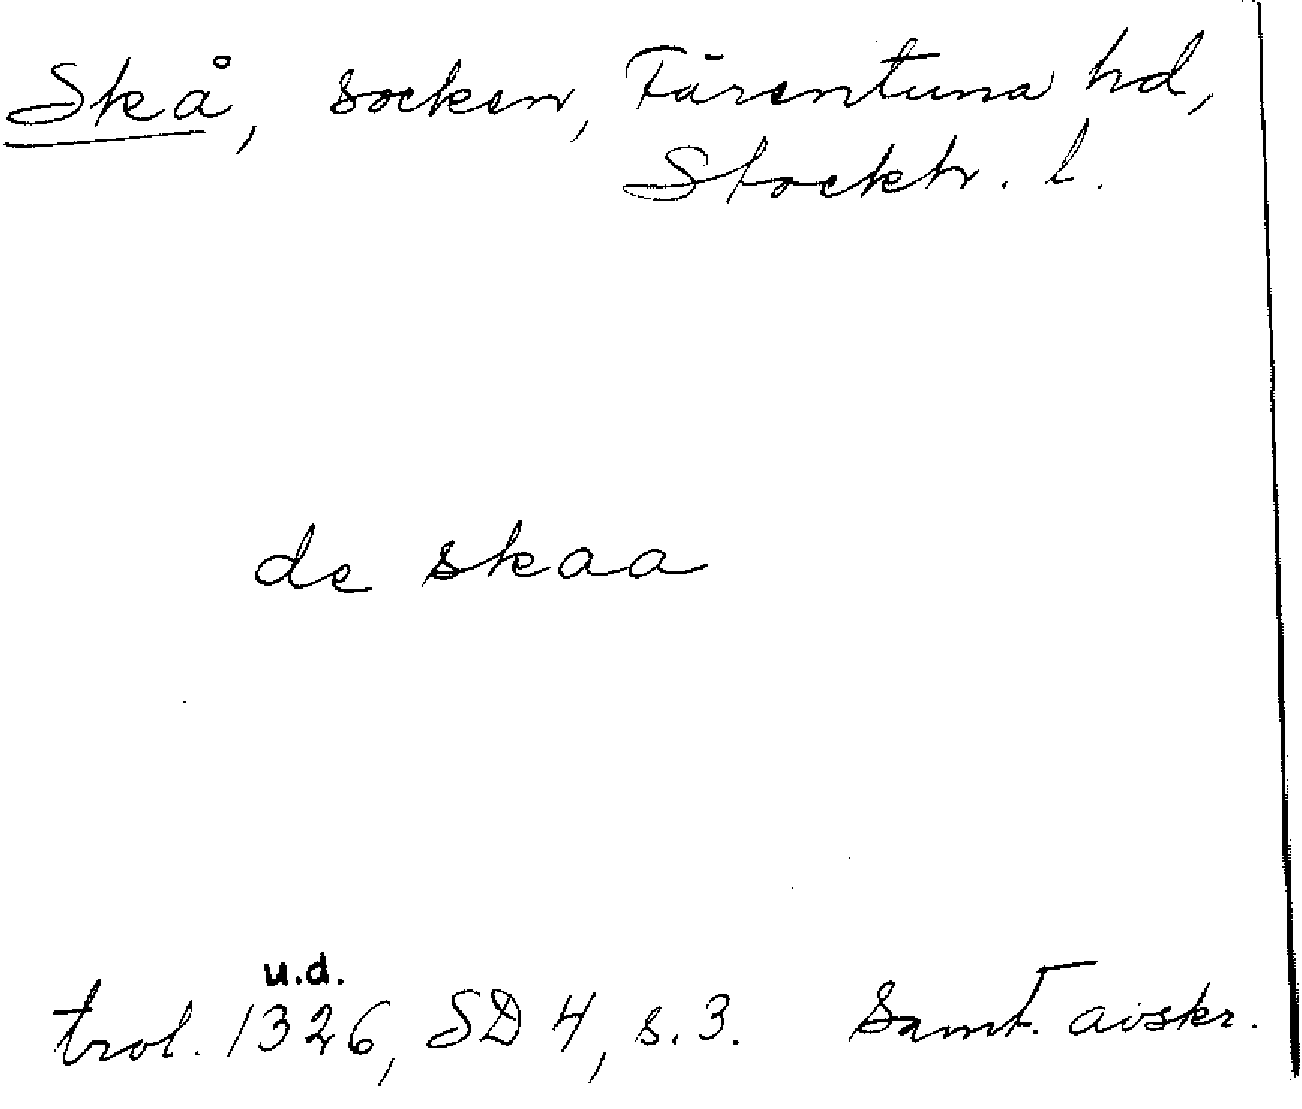 Skå, socken, Färentuna hd,
Stockh. l.
de skaa
u.d.
trol. 1326, SD 4, s. 3. Samt. avskr.